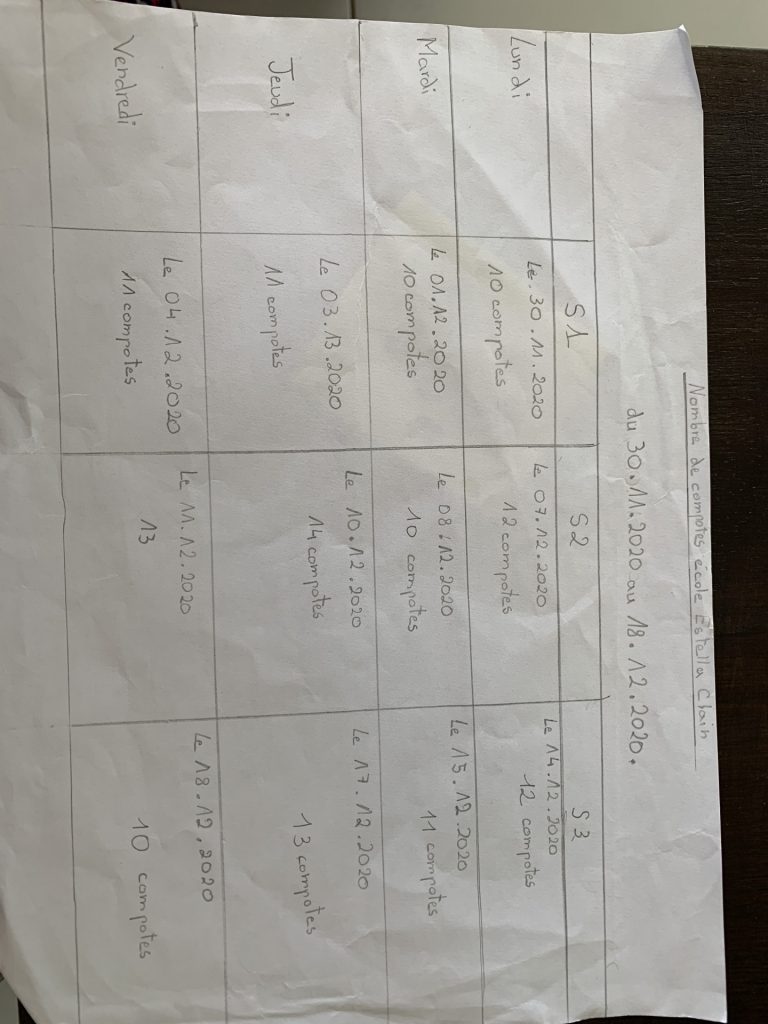 Nombre de compotes école Estella Clain
du 30.11.2020 au 18.12.2020.
S1 S2 S3
Lundi
Le 30.11.2020
10 compotes
Le 07.12.2020
12 compotes
Le 14.12.2020
12 compotes
Mardi
Le 01.12.2020
10 compotes
Le 08.12.2020
10 compotes
Le 15.12.2020
11 compotes
Jeudi
Le 03.13.2020
11 compotes
Le 10.12.2020
14 compotes
Le 17.12.2020
13 compotes
Vendredi
Le 04.12.2020
11 compotes
Le 11.12.2020
13
Le 18.12.2020
10 compotes